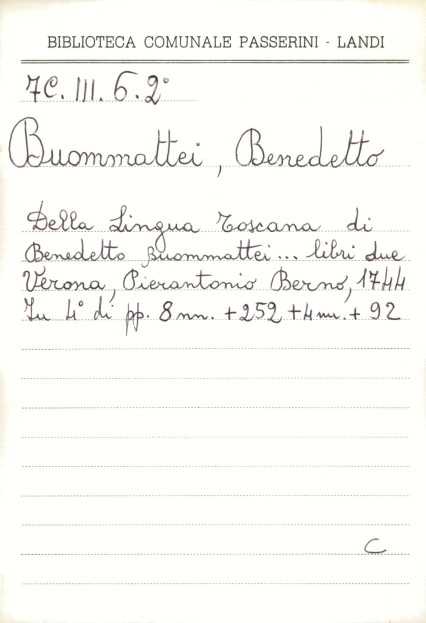 BIBLIOTECA COMUNALE PASSERINI - LANDI
7C. III. 6. 2°
Buommattei, Benedetto
Della Lingua Toscana di
Benedetto Buommattei... libri due
Verona, Pierantonio Berno, 1744
In 4° di pp. 8 nn. + 252 + 4 nn. + 92
C